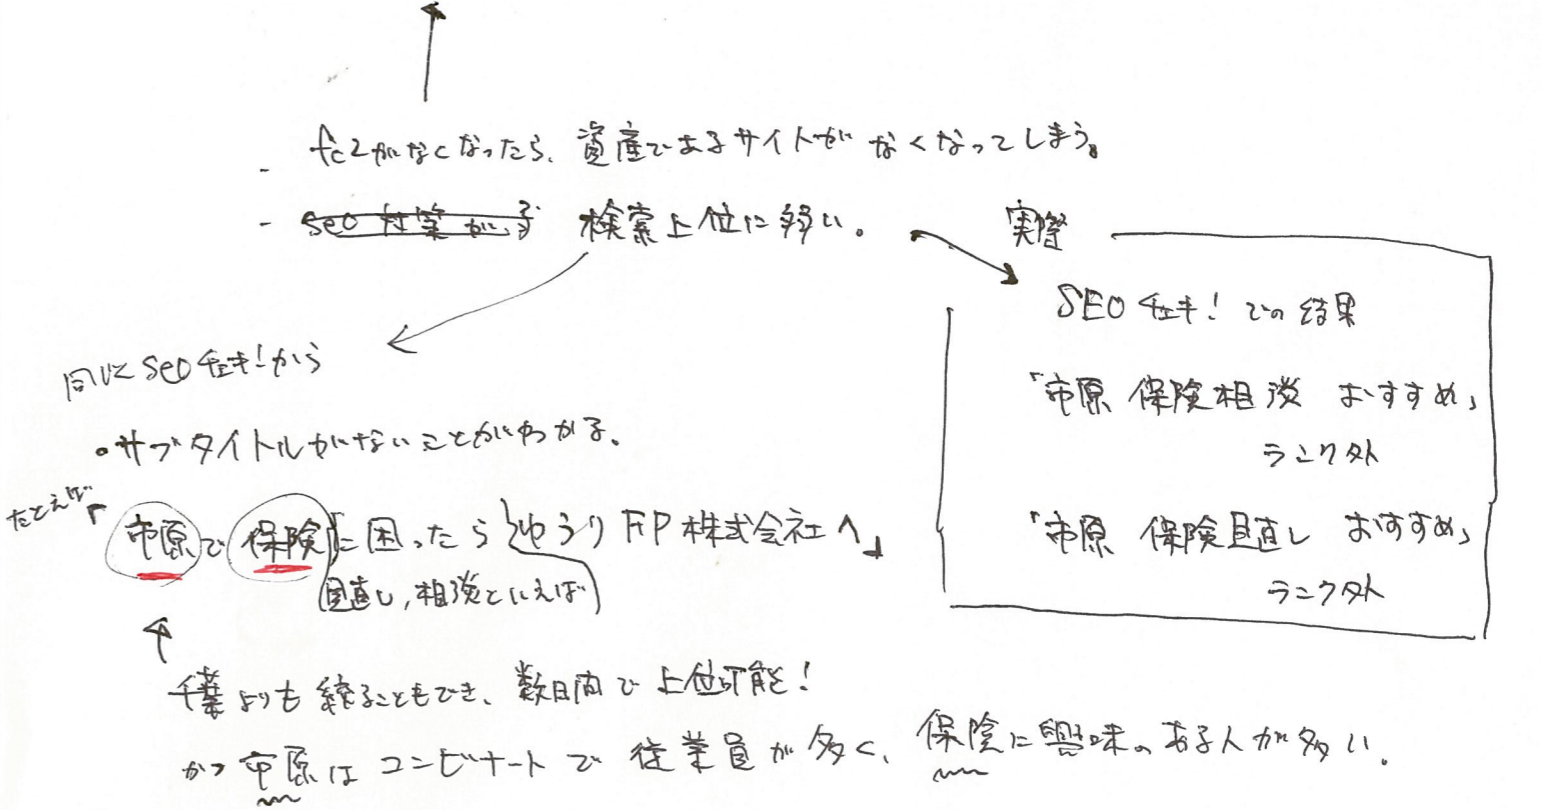 - fc2がなくなったら、資産であるサイトがなくなってしまう。
- seo対策が 検索上位に弱い。
実際
SEOチェキ!での結果
「市原 保険相談 おすすめ」
ランク外
「市原 保険見直し おすすめ」
ランク外
同じくseoチェキ!から
・サブタイトルがないことがわかる。
たとえば「市原で保険に困ったら ゆうりFP株式会社へ」
見直し,相談といえば
千葉よりも絞ることもでき、数日間で上位可能!
かつ市原はコンビナートで従業員が多く、保険に興味のある人が多い.